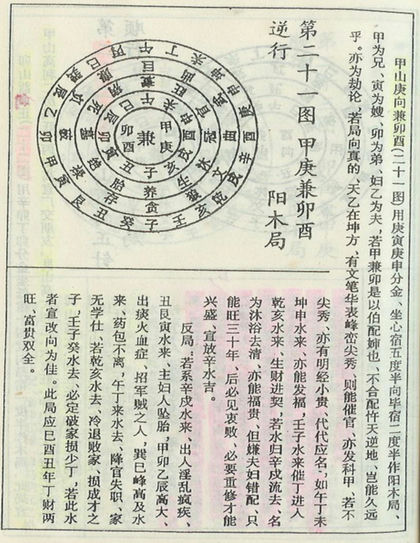 甲山庚向兼卯酉(二十一图)用庚寅庚申分金、坐心宿五度半向毕宿二度半作阳木局、
甲为兄、寅为嫂、卯为弟、妇乙为夫，若甲兼卯是以伯配婶也、不合配忤天逆地、岂能久远
乎。亦为劫论、若局向真的、天乙在坤方、有文笔华表峰峦尖秀、则能催官、亦发科甲、若不
第二十一图 甲庚兼卯酉
逆行 阳木局
兼
甲庚
卯酉
尖秀、亦有明经小贵、代代应名，如午丁未
坤申水来、亦能发福，壬子水来催丁进人
乾亥水来、生财进契；若水归辛戌流去、名
为沐浴去清、亦能福贵、但嫌夫妇错配、只
能旺三十年、后必见衰败、必要重修才能
兴盛、宜放辛水吉。
反局:若系辛戌水来、出人淫乱疯疾、
丑艮寅水来、主妇人坠胎，甲卯乙辰高大、
出痰火血症、招军贼之人，巽巳峰高及水
来、药包不离，午丁来水去、降官失职、家
无学仕；若乾亥水去、冷退败家、损成才之
子，壬子癸水去、必定破家损少丁，若此水
者宜改向为佳。此局应巳酉丑年丁财两
旺、富贵双全。